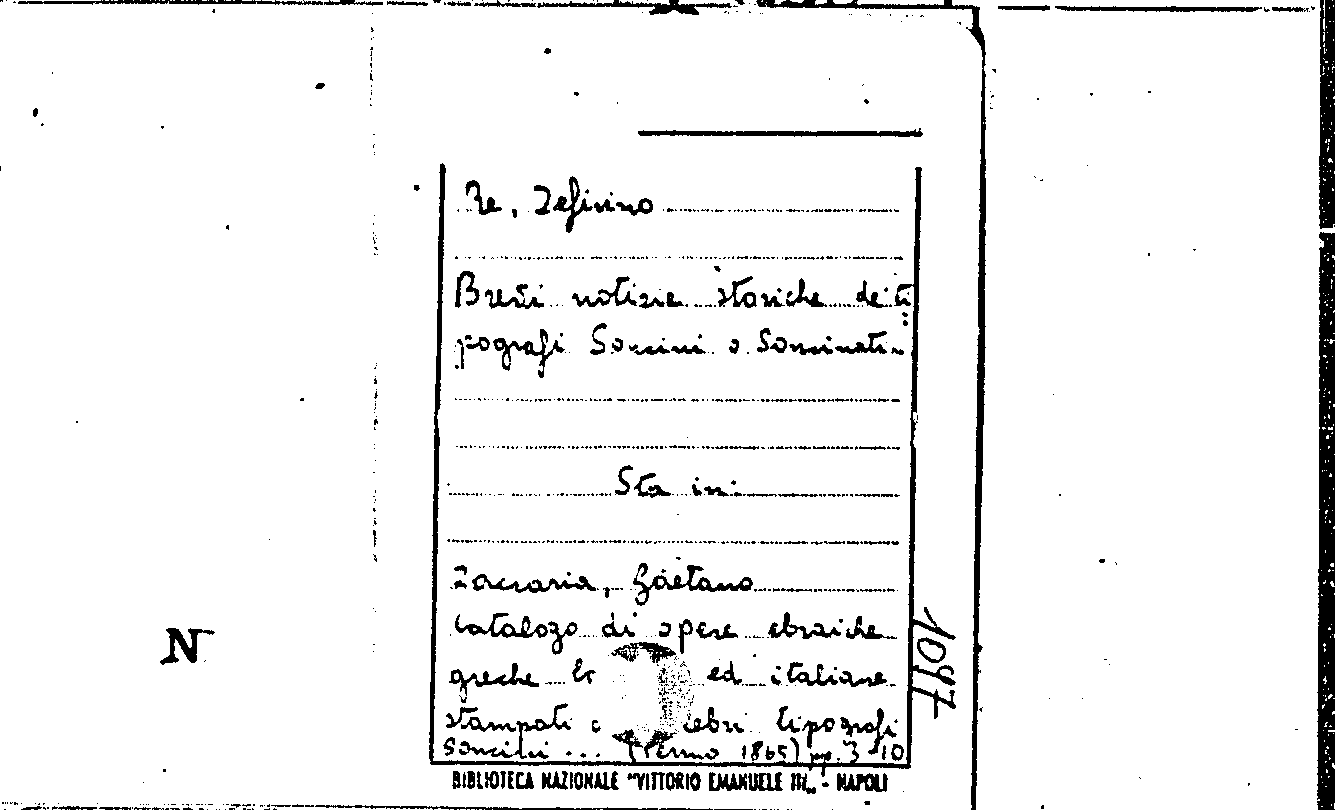 Re, Zefirino
Brevi notizie storiche dei ti
pografi Soncini o Soncinati.
Sta in:
Zaccaria, Gaetano
Catalogo di opere ebraiche
greche ed italiane
stampati tipografi
Soncini ... (Fermo 1865) pp. 3-10
BIBLIOTECA NAZIONALE "VITTORIO EMANUELE III„ - NAPOLI
1097
N